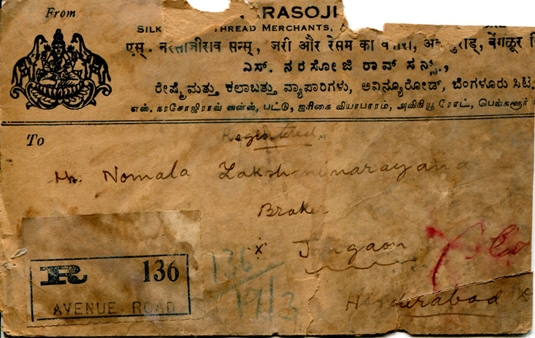 From
RASOJI
SILK THREAD MERCHANTS,
एस्. नरसोजीराव सन्स्, जरी और रेसम का बेंगळूर
ಎಸ್. ನರಸೋಜಿ ರಾವ್ ಸನ್ಸ್,
ರೇಷ್ಮೆ ಮತ್ತು ಕಲಾಬತ್ತು ವ್ಯಾಪಾರಿಗಳು, ಅವಿನ್ಯೂರೋಡ್, ಬೆಂಗಳೂರು ಸಿಟಿ
எஸ். நரசோஜிராவ் ஸன்ஸ், பட்டு, ஜரிகை வியாபாரம், அவின்யூ ரோட், பெங்களூர்
To
Registered
Mr. Nomala Lakshminarayana
Broker
x Jangaon
Hyderabad
R 136
AVENUE ROAD
136
19/3